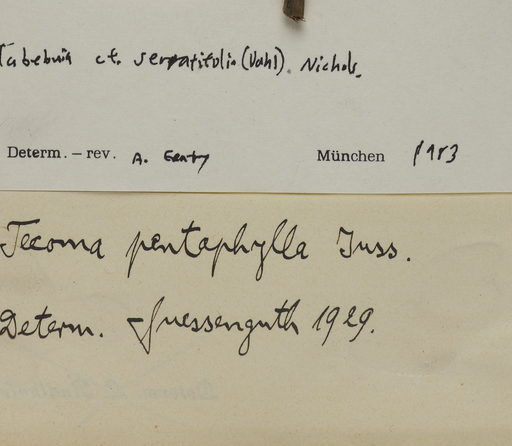 Tabebuia cf. serratifolia (Vahl). Nichols.
Determ. – rev. A. Gentry München 1983
Tecoma pentaphylla Juss.
Determ. Suessenguth 1929.